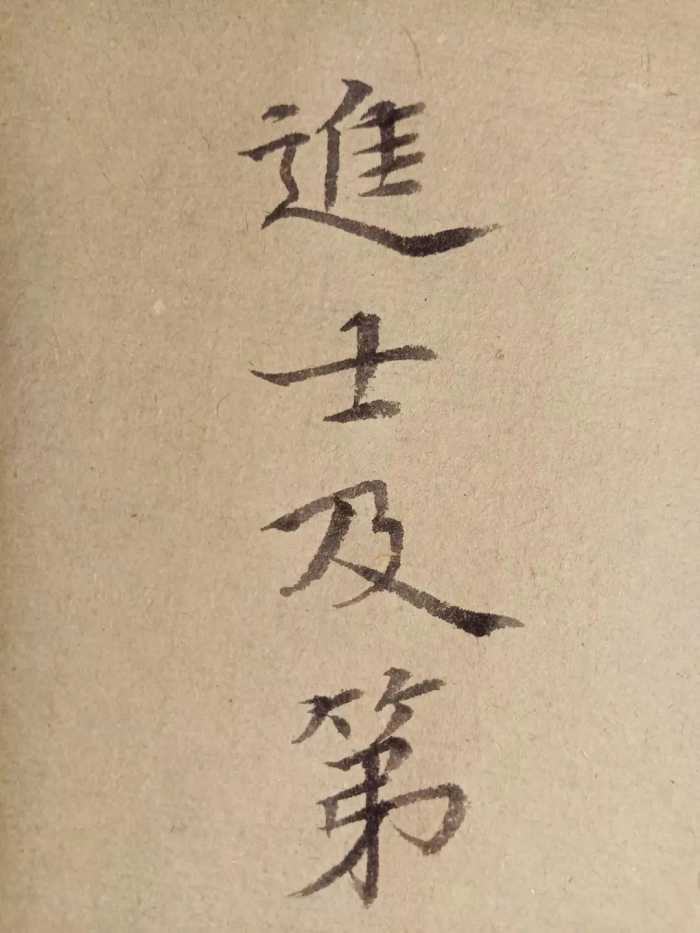 進士及第